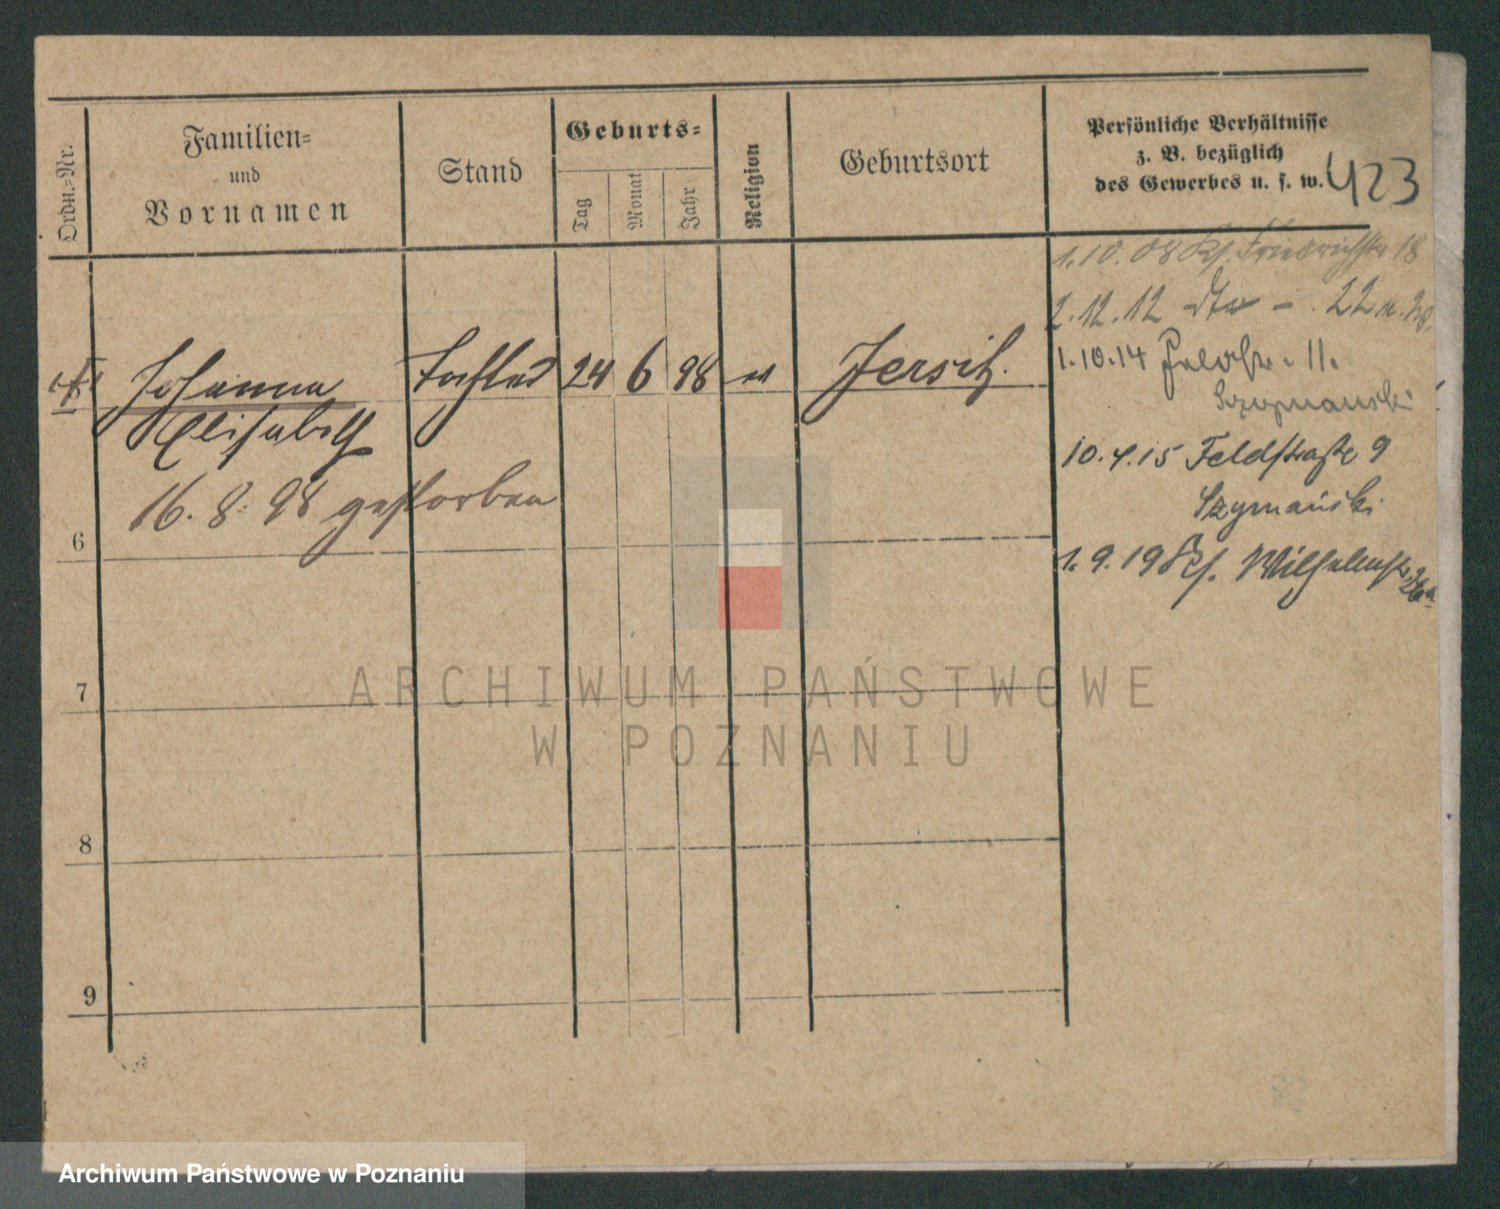 Ordn.-Nr.
Familien-
und
Vornamen
Stand
Geburts-
Tag
Monat
Jahr
Religion
Geburtsort
Persönliche Verhältnisse
z. B. bezüglich
des Gewerbes u. s. w.
423
1.10.08 Friedrichstr 18
2.12.12 dto - 22
Johanna Tochter 24 6 98 " Jersitz.
Elisabeth
16.8.98 gestorben
1.10.14 11.
Szymanski
10.4.15 Feldstraße 9
Szymański
1.9.19 Wilhelmstr. 26a
6
7
8
9
ARCHIWUM PAŃSTWOWE
W POZNANIU
Archiwum Państwowe w Poznaniu